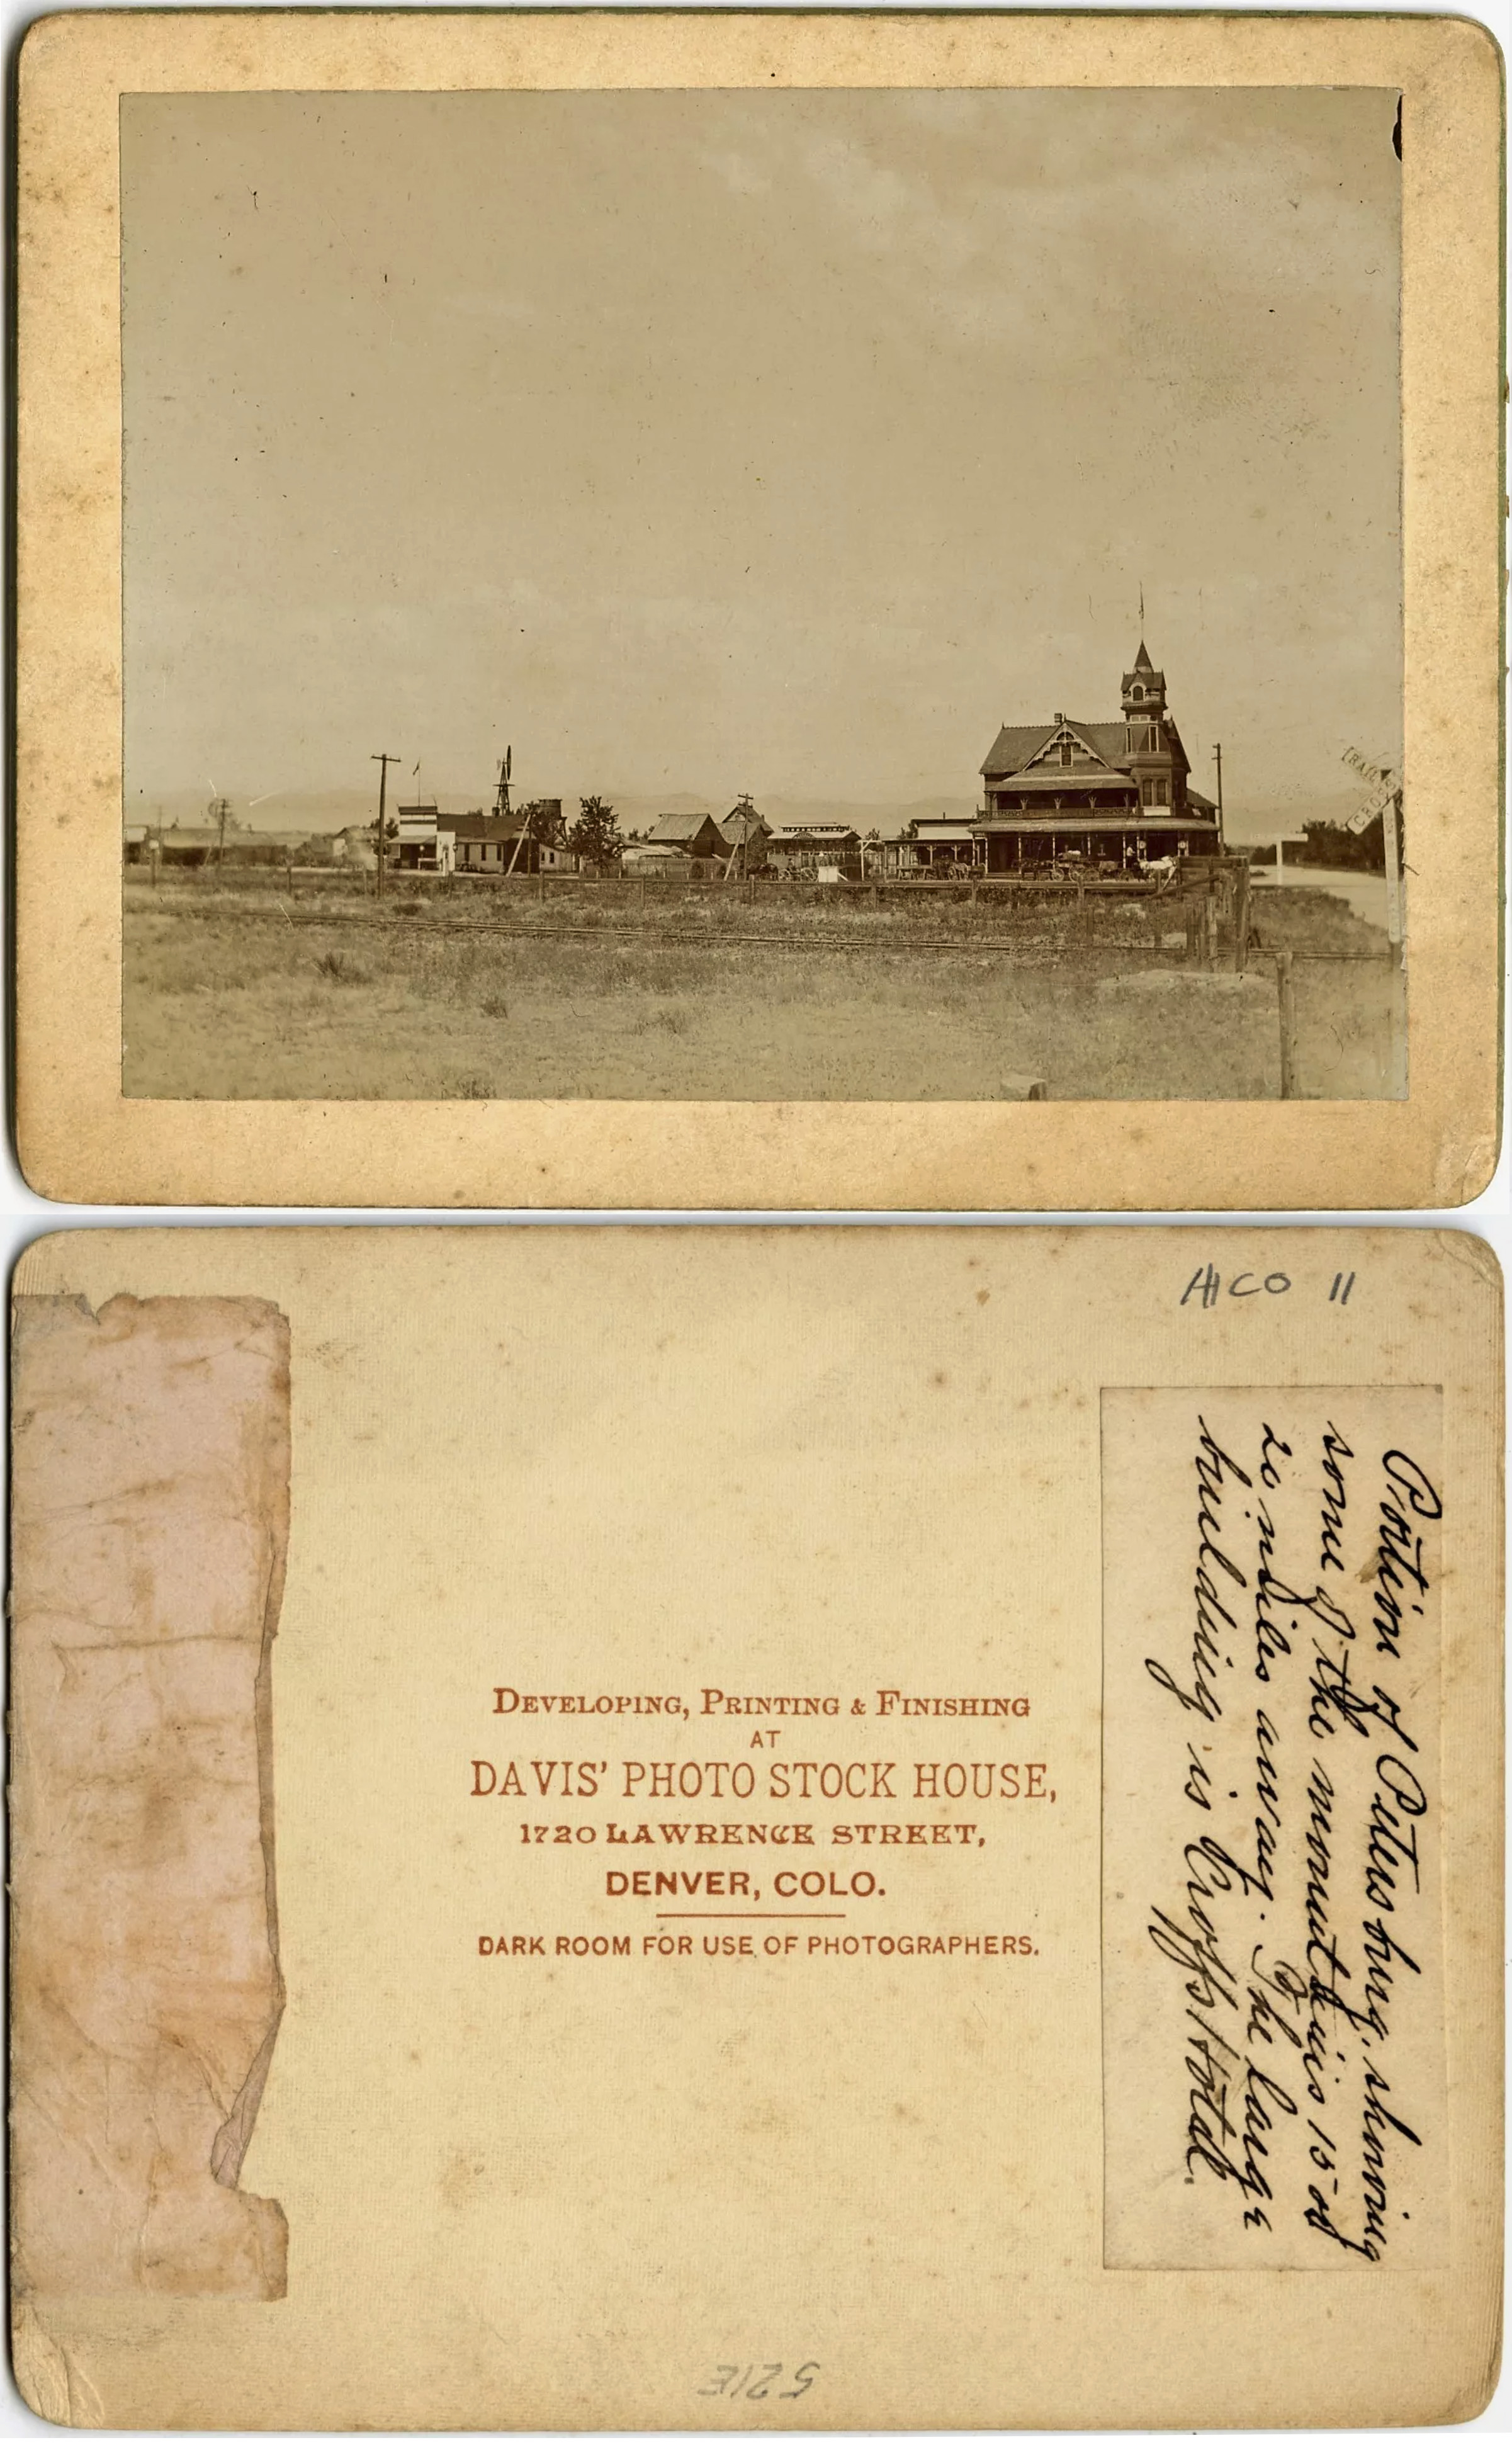 RAIL
CROS
HCO 11
Portion of Petersburg, showing
some of the mountains 15 or
20 miles away. The large
building is Croffs Hotel.
DEVELOPING, PRINTING & FINISHING
AT
DAVIS' PHOTO STOCK HOUSE,
1720 LAWRENCE STREET,
DENVER, COLO.
DARK ROOM FOR USE OF PHOTOGRAPHERS.